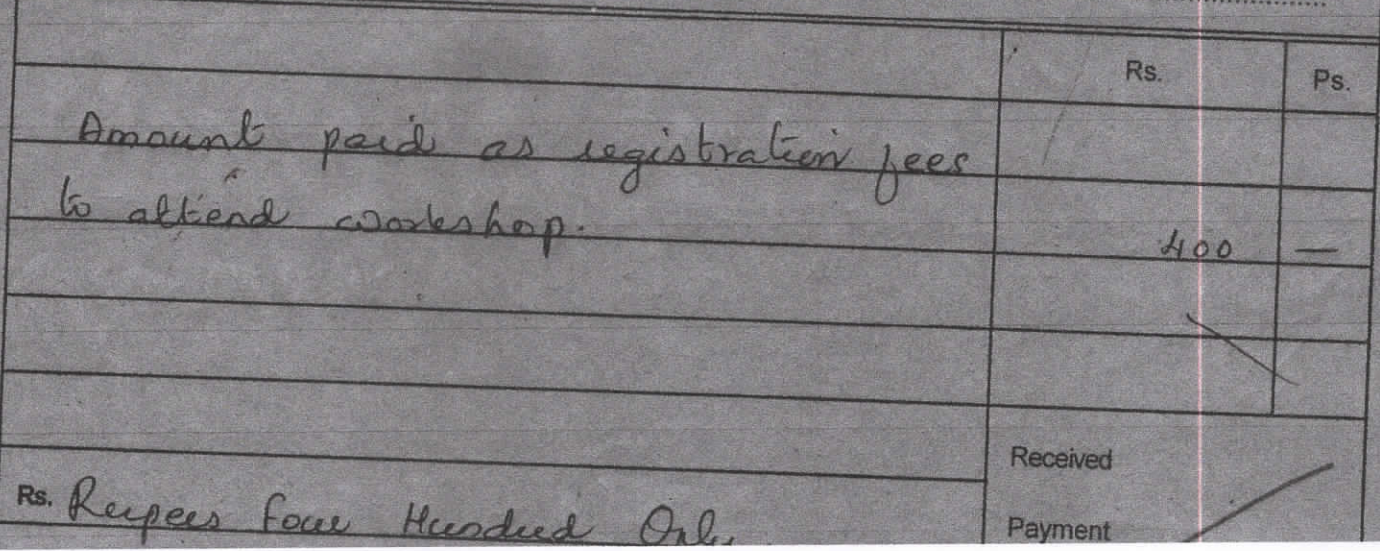 Rs. Ps.
Amount paid as registration fees
to attend workshop.
400 —
Received
Rs. Rupees four Hundred Only
Payment